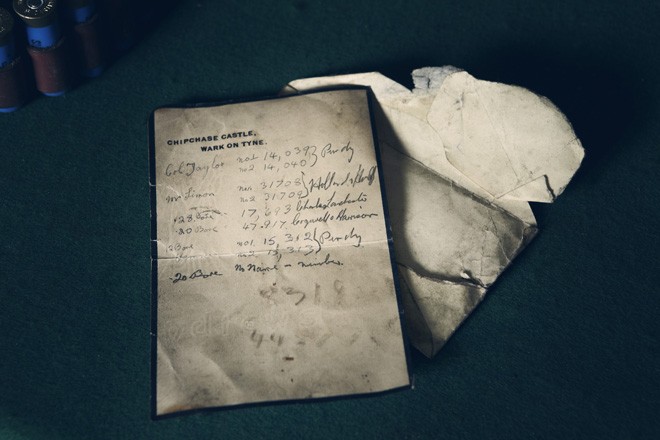 CHIPCHASE CASTLE,
WARK ON TYNE.
Col Taylor No1 14,039 } Purdy
No2 14,040
Mr Simon No1 31708 } Holland & Holland
No2 31709
28 Bore 17,693 Charles Lancaster
20 Bore 47.917 Cogswell & Harrison
Bore No1. 15,312 } Purdy
No2 15,313
20 Bore No Name – number